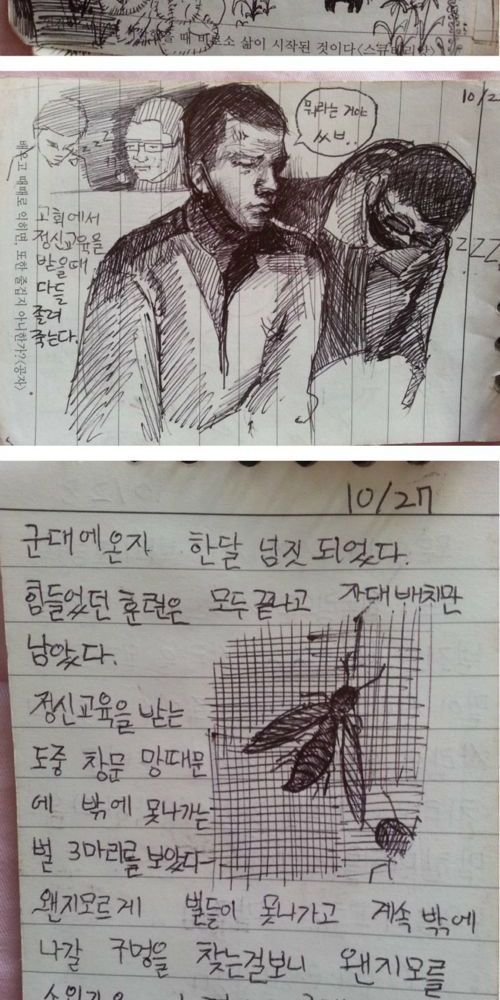 때 비로소 삶이 시작된 것이다
10/2
뭐라는 거야
ㅆㅂ..
zzz
ZZZ
배우고 때때로 익히면 또한 즐겁지 아니한가?<공자>
교회에서
정신교육을
받을때
다들
졸려
죽는다.
10/27
군대에온지 한달 넘짓 되었다.
힘들었던 훈련은 모두끝나고 자대배치만
남았다.
정신교육을 받는
도중 창문 망때문
에 밖에 못나가는
벌 3마리를 보았다
왠지모르게 벌들이 못나가고 계속 밖에
나갈 구멍을 찾는걸보니 왠지모를